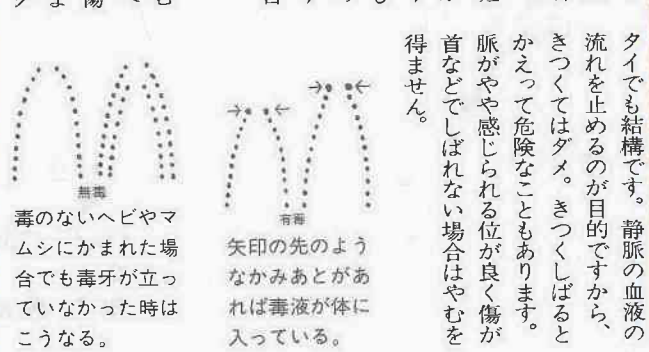 タイでも結構です。静脈の血液の
流れを止めるのが目的ですから、
きつくてはダメ。きつくしばると
かえって危険なこともあります。
脈がやや感じられる位が良く傷が
首などでしばれない場合はやむを
得ません。
有毒
矢印の先のよう
なかみあとがあ
れば毒液が体に
入っている。
無毒
毒のないヘビやマ
ムシにかまれた場
合でも毒牙が立っ
ていなかった時は
こうなる。